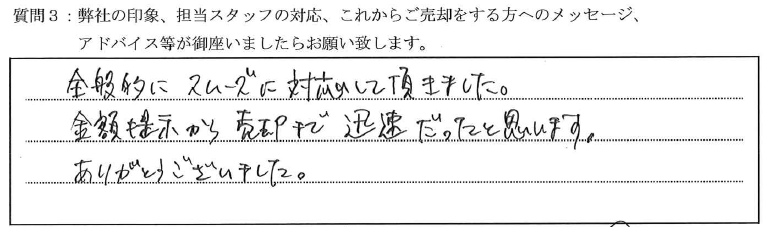 質問３：弊社の印象、担当スタッフの対応、これからご売却をする方へのメッセージ、
アドバイス等が御座いましたらお願い致します。
全般的に スムーズに対応して頂きました。
金額提示から売却まで 迅速だったと思います。
ありがとうございました。